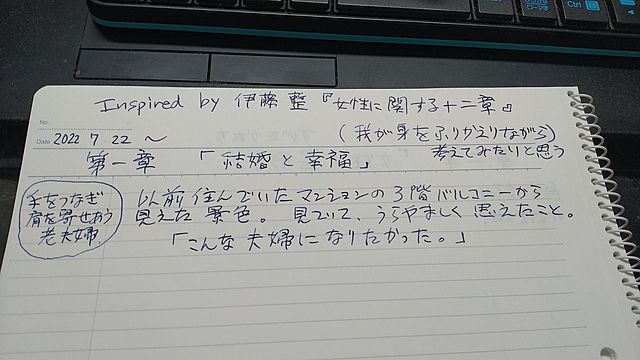 Inspired by 伊藤 整『女性に関する十二章』
No.
Date 2022 7. 22 〜
(我が身をふりかえりながら)
考えてみたいと思う
第一章 「結婚と幸福」
手をつなぎ
肩を寄せあう
老夫婦
以前住んでいたマンションの3階バルコニーから
見えた景色。見ていて、うらやましく思えたこと。
「こんな夫婦になりたかった。」
Ctrl